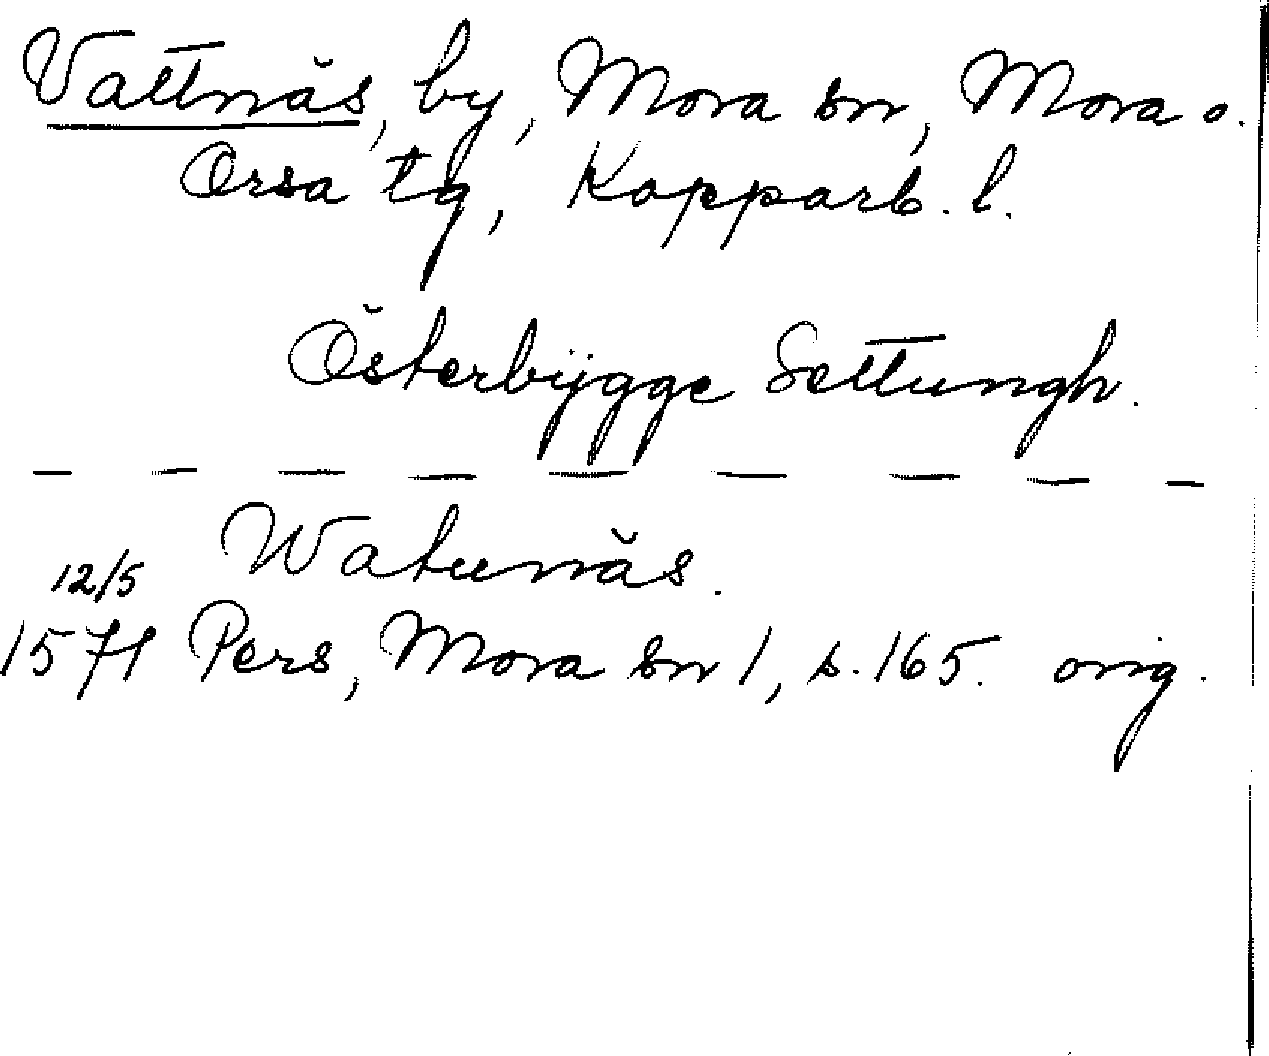 Vattnäs, by, Mora sn, Mora o.
Orsa tg, Kopparb. l.
Österbÿgge Settungh.
Watunäs.
12/5
1571 Pers, Mora sn 1, s. 165. orig.